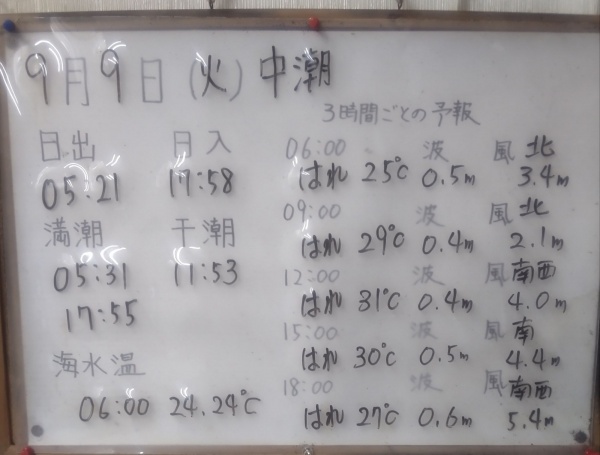 9月9日(火)中潮
日出 日入
05:21 17:58
満潮 干潮
05:31 11:53
17:55
海水温
06:00 24.24℃
3時間ごとの予報
06:00 波 風 北
はれ 25℃ 0.5m 3.4m
09:00 波 風 北
はれ 29℃ 0.4m 2.1m
12:00 波 風 南西
はれ 31℃ 0.4m 4.0m
15:00 波 風 南
はれ 30℃ 0.5m 4.4m
18:00 波 風 南西
はれ 27℃ 0.6m 5.4m